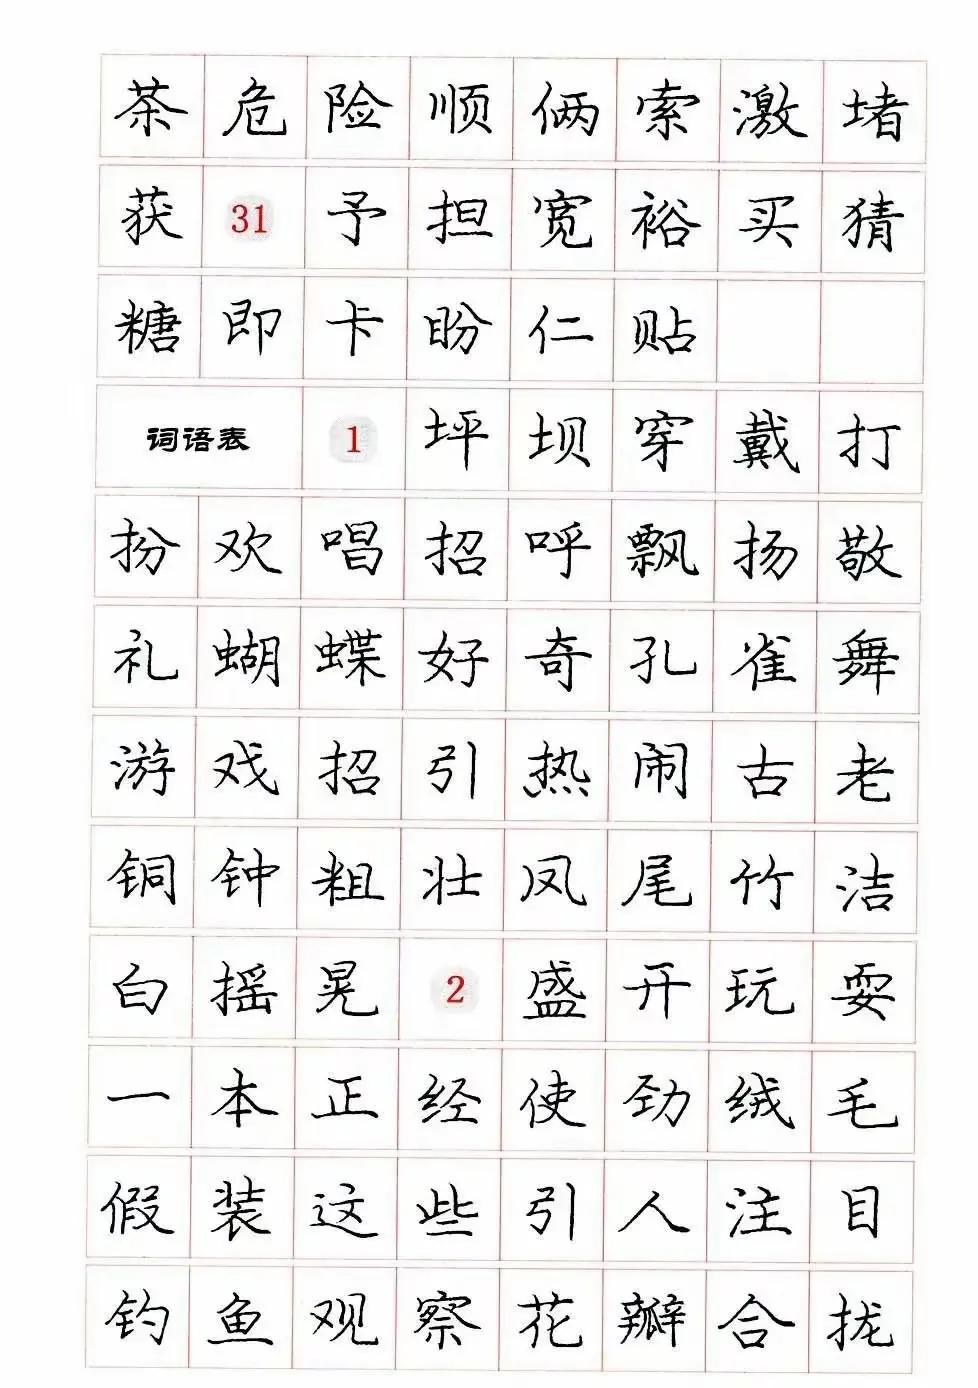 茶危险顺俩索激堵
获31予担宽裕买猜
糖即卡盼仁贴
词语表1坪坝穿戴打
扮欢唱招呼飘扬敬
礼蝴蝶好奇孔雀舞
游戏招引热闹古老
铜钟粗壮凤尾竹洁
白摇晃2盛开玩耍
一本正经使劲绒毛
假装这些引人注目
钓鱼观察花瓣合拢